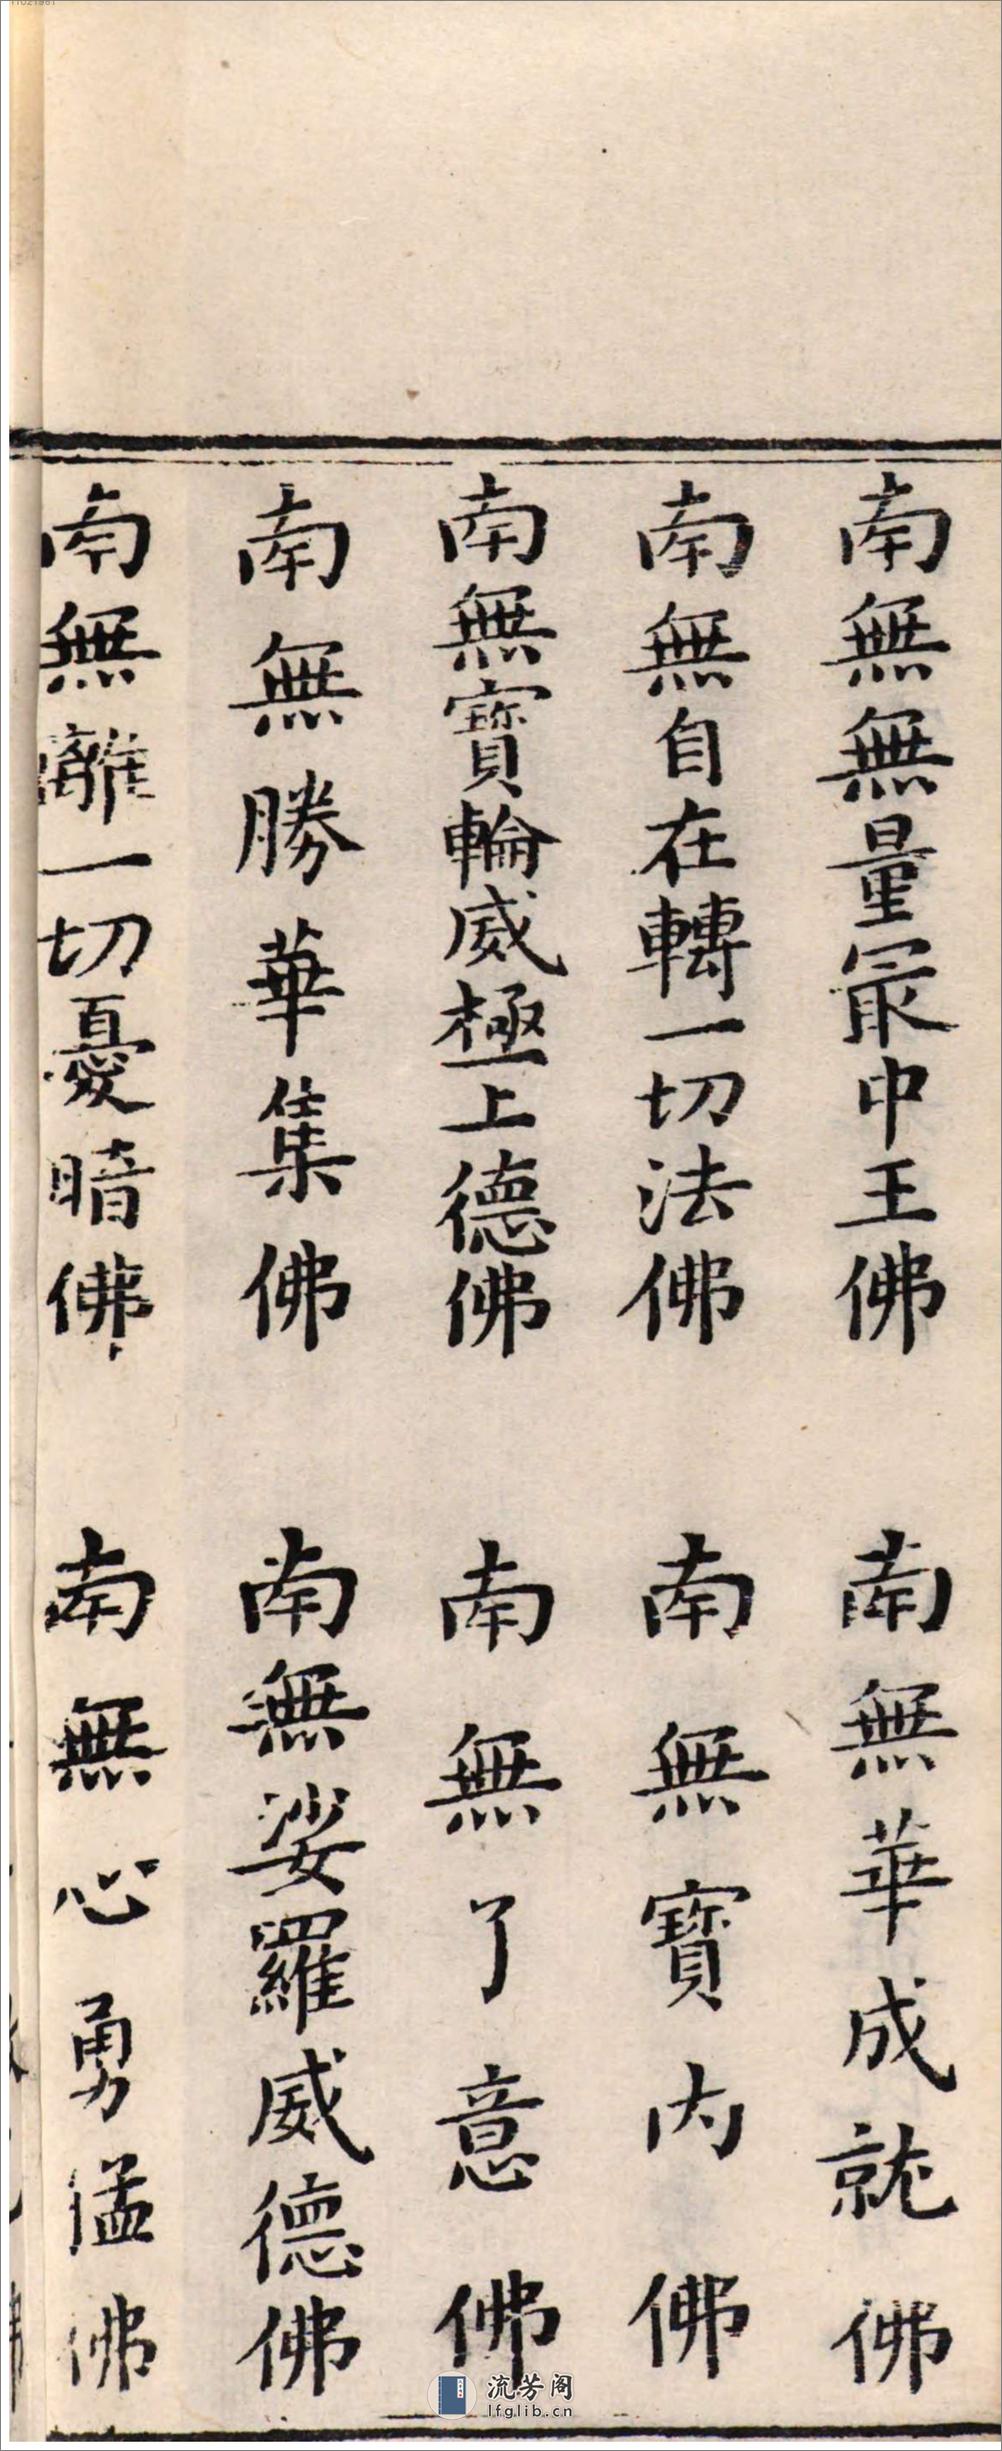 南無無量最中王佛
南無華成就佛
南無自在轉一切法佛
南無寶內佛
南無寶輪威極上德佛
南無了意佛
南無勝華集佛
南無娑羅威德佛
南無離一切憂暗佛
南無心勇猛佛
流芳阁
lfglib.cn